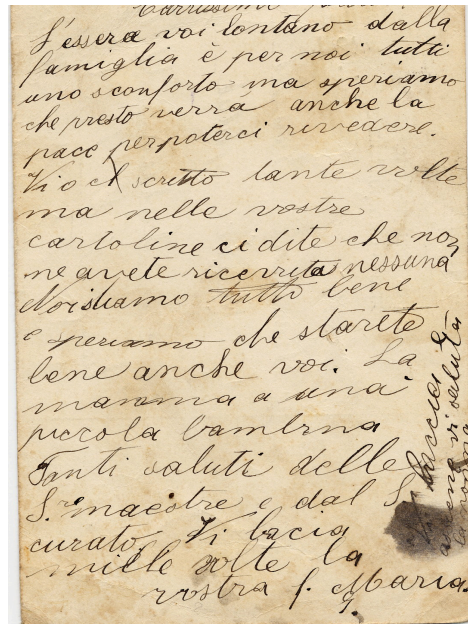 Carissimi
L'essera voi lontano dalla
famiglia è per noi tutti
uno sconforto ma speriamo
che presto verra anche la
pace perpoterci rivedere.
Vi o scritto tante volte
ma nelle vostre
cartoline ci dite che non
ne avete ricevuta nessuna
Noi stiamo tutto bene
e speriamo che starete
bene anche voi. La
mamma a una
piccola bambina
Tanti saluti delle
S. maestre e dal S.
curato, Vi bacia
mille volte la
vostra f. Maria.
vi saluta